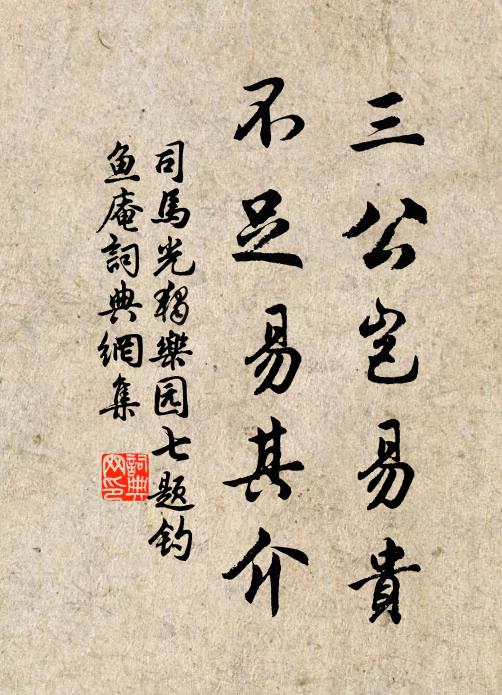 三公岂易貴
不足易其介
司馬光獨樂园七题钓
鱼庵詞典網集
詞典网印